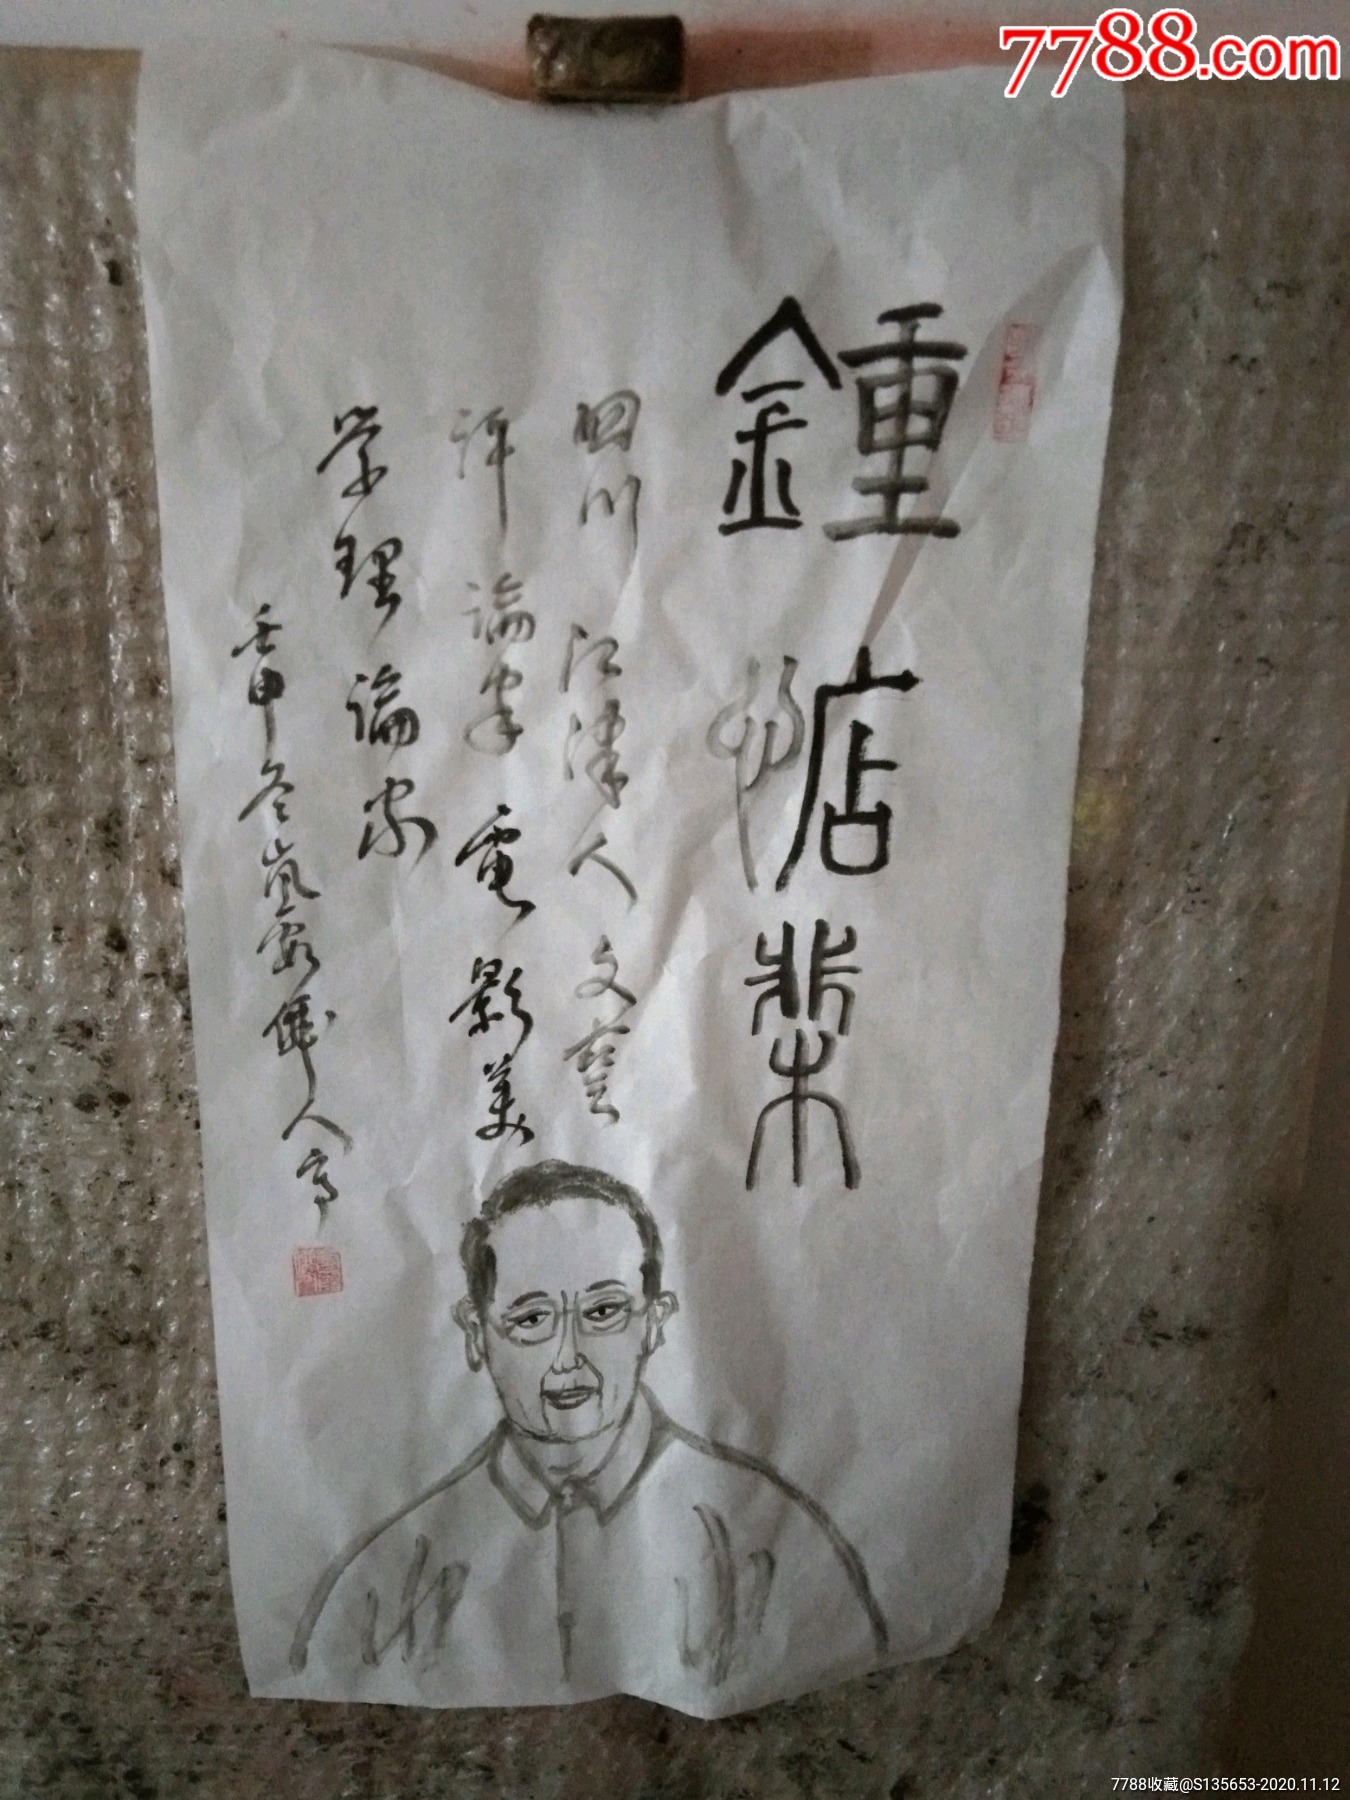 7788.com
鍾惦棐
四川江津人文藝
评論家電影美
学理論家
壬申冬嵐霞佛人寫
7788收藏@S135653-2020.11.12